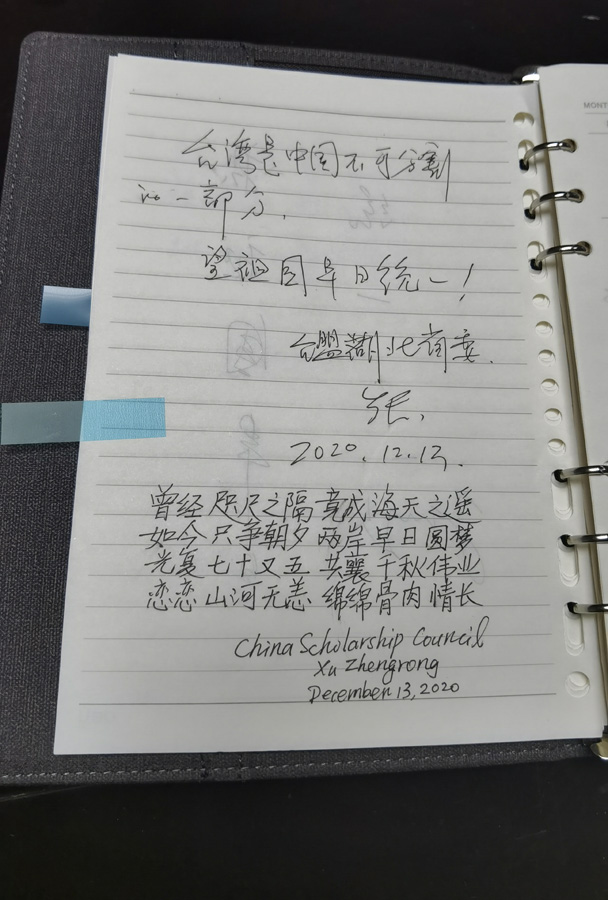 台湾是中国不可分割
的一部分.
望祖国早日统一!
台盟湖北省委.
张.
2020.12.13.
曾经 咫尺之隔 竟成 海天之遥
如今 只争朝夕 两岸 早日圆梦
光复 七十又五 共襄 千秋伟业
恋恋 山河无恙 绵绵 骨肉情长
China Scholarship Council
Xu Zhengrong
December 13, 2020
MONT